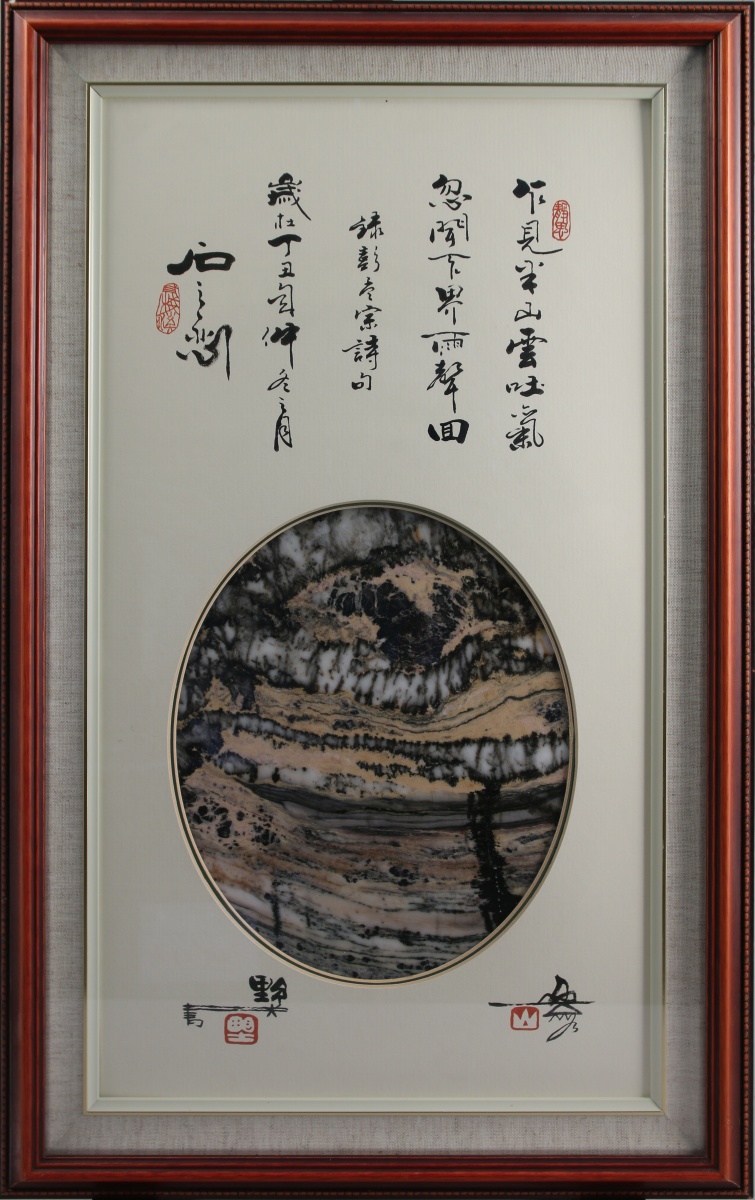 乍見半山雲吐氣
忽聞下界雨聲回
錄彭宗詩句
歲在丁丑年仲冬之月
石之
靜思
野
書
山